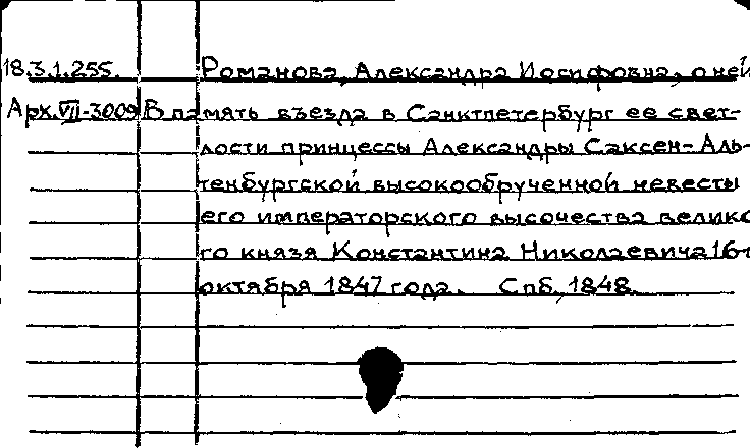 18.3.1.255. Романова, Александра Иосифовна, о ней
Арх.VII-3009 В память въезда в Санктпетербург ее свет-
лости принцессы Александры Саксен-Аль-
тенбургской высокообрученной невесты
его императорского высочества велико
го князя Константина Николаевича 16г
октября 1847 года. Спб, 1848.